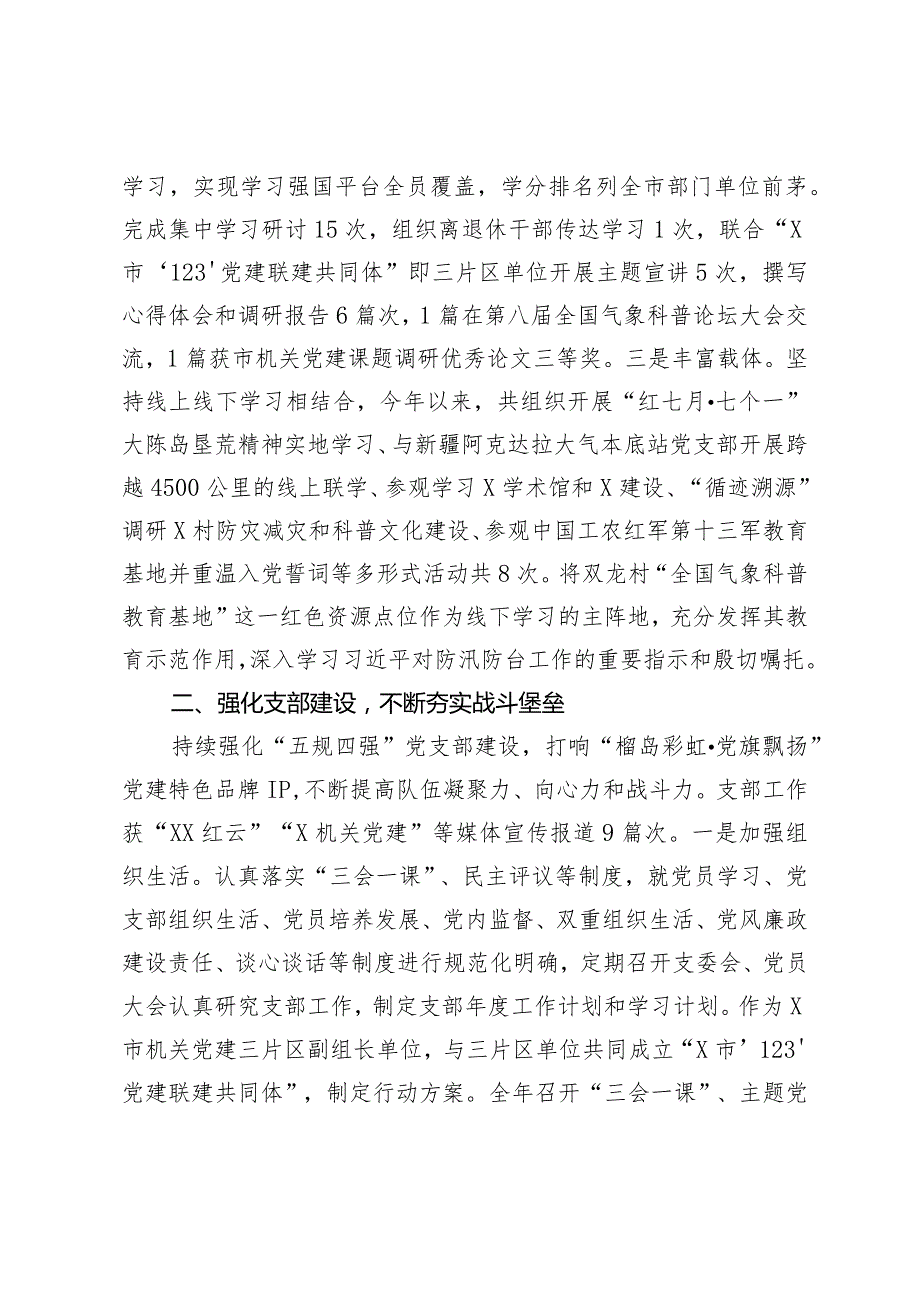 学习，实现学习强国平台全员覆盖，学分排名列全市部门单位前茅。
完成集中学习研讨15次，组织离退休干部传达学习1次，联合“X
市‘123'党建联建共同体”即三片区单位开展主题宣讲5次，撰写
心得体会和调研报告6篇次，1篇在第八届全国气象科普论坛大会交
流，1篇获市机关党建课题调研优秀论文三等奖。三是丰富载体。坚
持线上线下学习相结合，今年以来，共组织开展“红七月•七个一”
大陈岛垦荒精神实地学习、与新疆阿克达拉大气本底站党支部开展跨
越4500公里的线上联学、参观学习X学术馆和X建设、“循迹溯源”
调研X村防灾减灾和科普文化建设、参观中国工农红军第十三军教育
基地并重温入党誓词等多形式活动共8次。将双龙村“全国气象科普
教育基地”这一红色资源点位作为线下学习的主阵地，充分发挥其教
育示范作用,深入学习习近平对防汛防台工作的重要指示和殷切嘱托。
二、强化支部建设，不断夯实战斗堡垒
持续强化“五规四强”党支部建设，打响“榴岛彩虹•党旗飘扬”
党建特色品牌IP,不断提高队伍凝聚力、向心力和战斗力。支部工作
获“XX红云”“X机关党建”等媒体宣传报道9篇次。一是加强组
织生活。认真落实“三会一课”、民主评议等制度，就党员学习、党
支部组织生活、党员培养发展、党内监督、双重组织生活、党风廉政
建设责任、谈心谈话等制度进行规范化明确，定期召开支委会、党员
大会认真研究支部工作，制定支部年度工作计划和学习计划。作为X
市机关党建三片区副组长单位，与三片区单位共同成立“X市’123'
党建联建共同体”，制定行动方案。全年召开“三会一课”、主题党